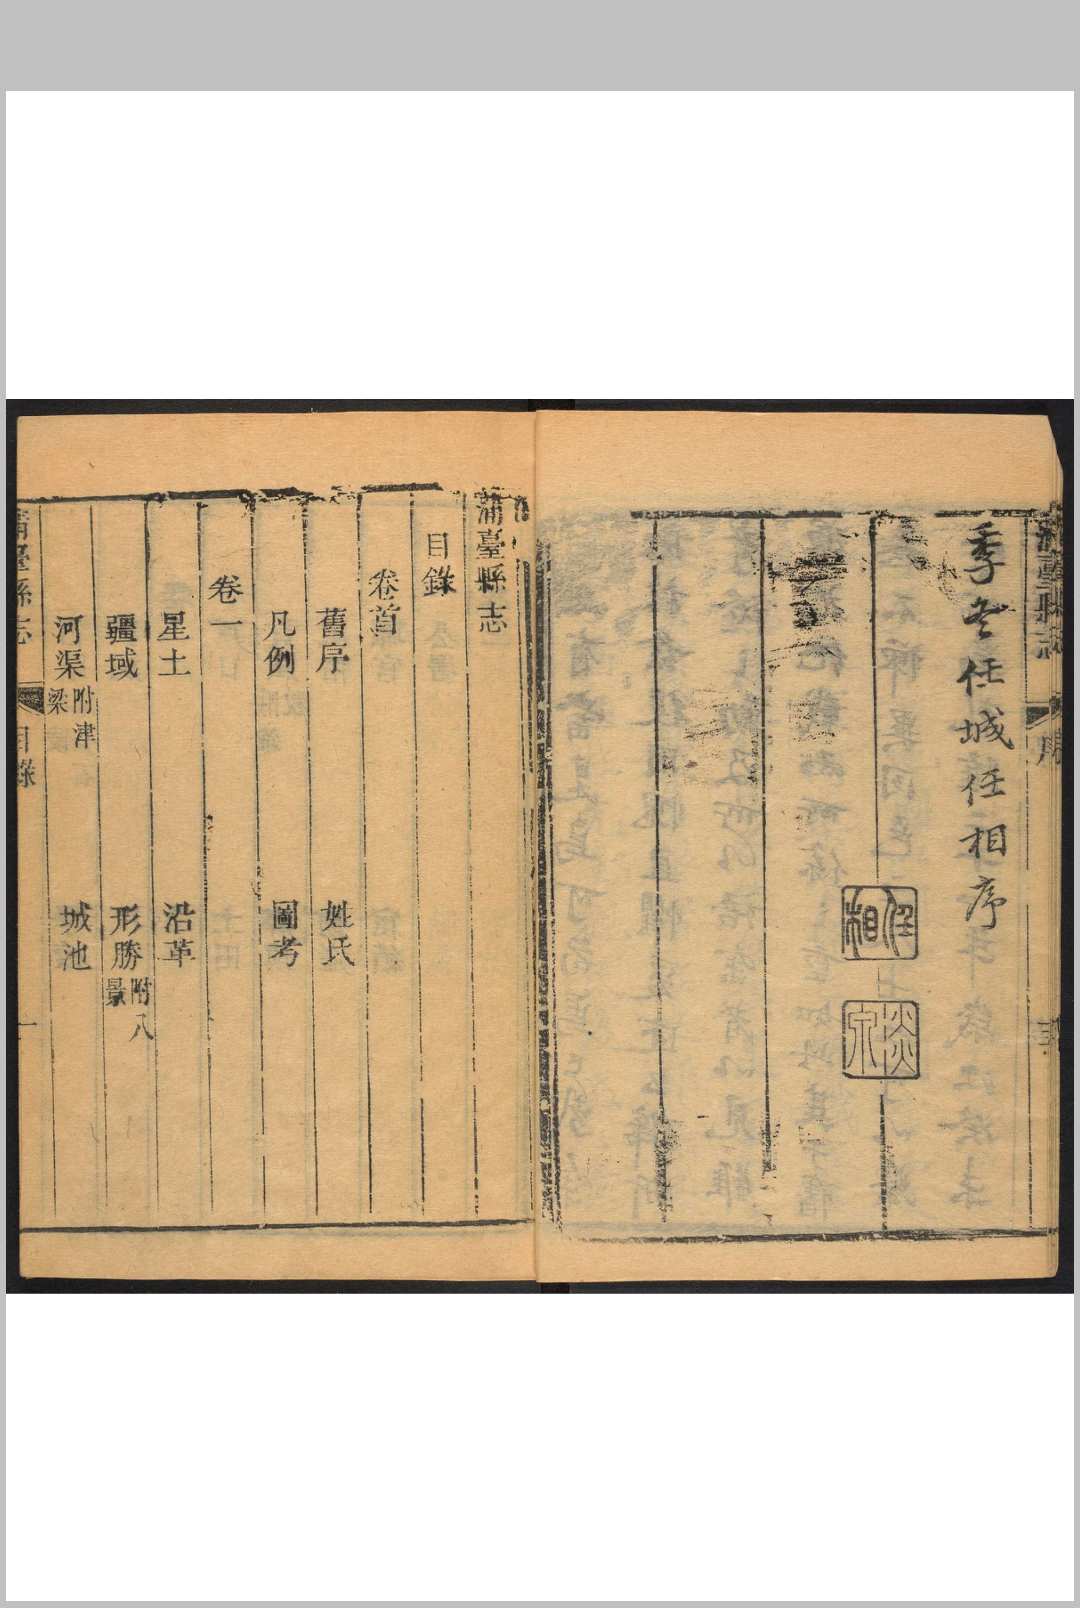 季冬任城任相序
任相
淡泉
蒲臺縣志
序
蒲臺縣志
目錄
卷首
舊序 姓氏
凡例 圖考
卷一
星土 沿革
疆域 形勝附八景
河渠附津梁 城池
蒲臺縣志
目錄
一